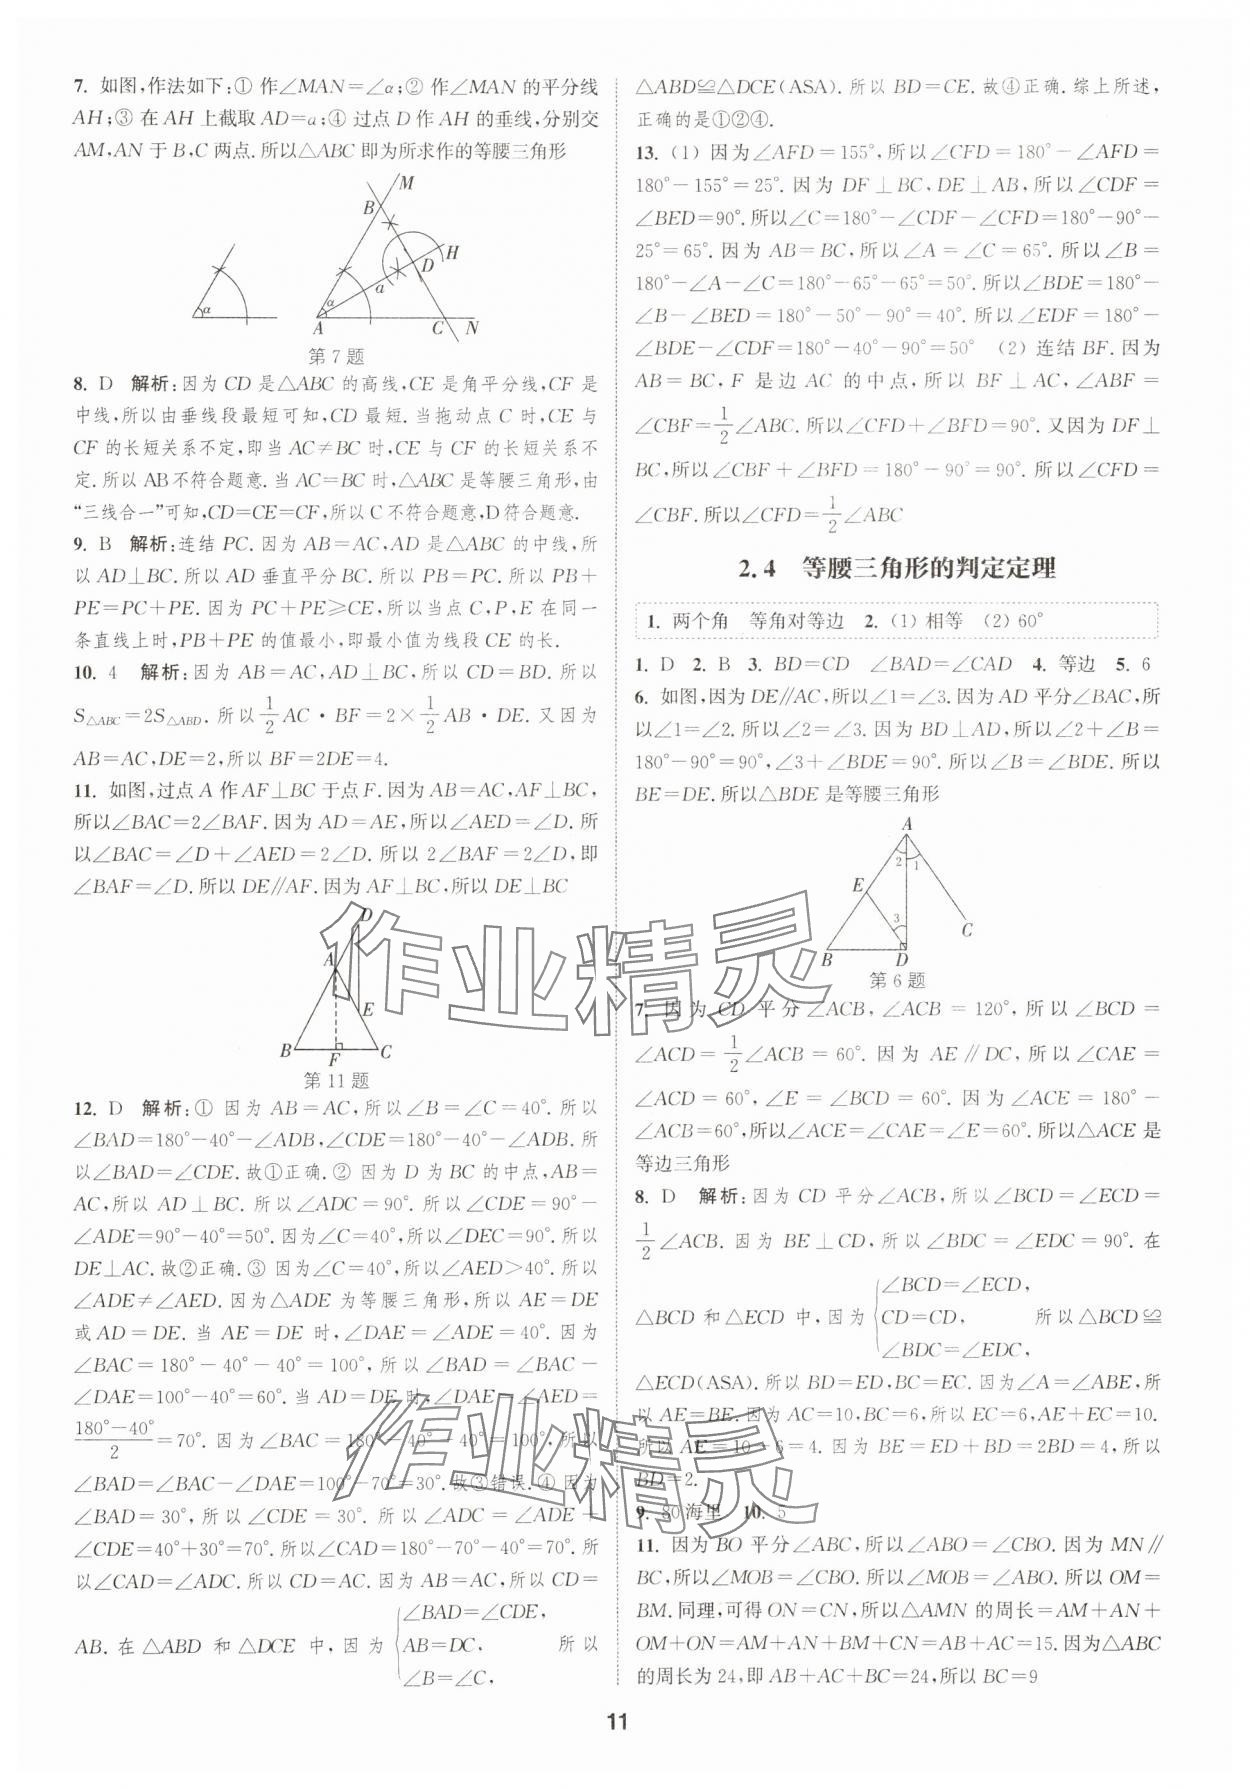 7. 如图,作法如下:① 作∠MAN=∠α;② 作∠MAN 的平分线
AH;③ 在 AH 上截取 AD=a;④ 过点 D 作 AH 的垂线,分别交
AM,AN 于 B,C 两点.所以△ABC 即为所求作的等腰三角形
M
B
H
D
a
α
α
A
C
N
第 7 题
8. D 解析:因为 CD 是△ABC 的高线,CE 是角平分线,CF 是
中线,所以由垂线段最短可知,CD 最短.当拖动点 C 时,CE 与
CF 的长短关系不定,即当 AC≠BC 时,CE 与 CF 的长短关系不
定.所以 AB不符合题意.当 AC=BC 时,△ABC 是等腰三角形,由
“三线合一”可知,CD=CE=CF,所以 C 不符合题意,D符合题意.
9. B 解析:连结 PC.因为 AB=AC,AD 是△ABC 的中线,所
以 AD⊥BC.所以 AD 垂直平分 BC.所以 PB=PC.所以 PB+
PE=PC+PE.因为 PC+PE⩾CE,所以当点 C,P,E 在同一
条直线上时,PB+PE 的值最小,即最小值为线段 CE 的长.
10. 4 解析:因为 AB=AC,AD⊥BC.所以 CD=BD.所以
S△ABC=2S△ABD.所以 1/2 AC·BF=2×1/2 AB·DE.又因为
AB=AC,DE=2,所以 BF=2DE=4.
11. 如图,过点 A 作 AF⊥BC 于点 F.因为 AB=AC,AF⊥BC,
所以∠BAC=2∠BAF.因为 AD=AE,所以∠AED=∠D.所
以∠BAC=∠D+∠AED=2∠D.所以 2∠BAF=2∠D,即
∠BAF=∠D.所以 DE∥AF.因为 AF⊥BC,所以 DE⊥BC
D
A
E
B
F
C
第 11 题
12. D 解析:① 因为 AB=AC,所以∠B=∠C=40°.所以
∠BAD=180°-40°-∠ADB,∠CDE=180°-40°-∠ADB.所
以∠BAD=∠CDE.故①正确.② 因为 D 为 BC 的中点,AB=
AC,所以 AD⊥BC.所以∠ADC=90°.所以∠CDE=90°-
∠ADE=90°-40°=50°.因为∠C=40°,所以∠DEC=90°.所以
DE⊥AC.故②正确.③ 因为∠C=40°,所以∠AED>40°.所以
∠ADE≠∠AED.因为△ADE 为等腰三角形,所以 AE=DE
或 AD=DE.当 AE=DE 时,∠DAE=∠ADE=40°.因为
∠BAC=180°-40°-40°=100°,所以∠BAD=∠BAC-
∠DAE=100°-40°=60°.当 AD=DE 时,∠DAE=∠AED=
(180°-40°)/2=70°.因为∠BAC=180°-40°-40°=100°,所以
∠BAD=∠BAC-∠DAE=100°-70°=30°.故③错误.④ 因为
∠BAD=30°,所以∠CDE=30°.所以∠ADC=∠ADE+
∠CDE=40°+30°=70°.所以∠CAD=180°-70°-40°=70°.所
以∠CAD=∠ADC.所以 CD=AC.因为 AB=AC,所以 CD=
AB.在△ABD 和△DCE 中,因为 {∠BAD=∠CDE, AB=DC, ∠B=∠C, 所以
△ABD≌△DCE(ASA).所以 BD=CE.故④正确.综上所述,
正确的是①②④.
13. (1) 因为∠AFD=155°,所以∠CFD=180°-∠AFD=
180°-155°=25°.因为 DF⊥BC,DE⊥AB,所以∠CDF=
∠BED=90°.所以∠C=180°-∠CDF-∠CFD=180°-90°-
25°=65°.因为 AB=BC,所以∠A=∠C=65°.所以∠B=
180°-∠A-∠C=180°-65°-65°=50°.所以∠BDE=180°-
∠B-∠BED=180°-50°-90°=40°.所以∠EDF=180°-
∠BDE-∠CDF=180°-40°-90°=50° (2) 连结 BF.因为
AB=BC,F 是边 AC 的中点,所以 BF⊥AC,∠ABF=
∠CBF=1/2∠ABC.所以∠CFD+∠BFD=90°.又因为 DF⊥
BC,所以∠CBF+∠BFD=180°-90°=90°.所以∠CFD=
∠CBF.所以∠CFD=1/2∠ABC
2.4 等腰三角形的判定定理
1. 两个角 等角对等边 2. (1) 相等 (2) 60°
1. D 2. B 3. BD=CD ∠BAD=∠CAD 4. 等边 5. 6
6. 如图,因为 DE∥AC,所以∠1=∠3.因为 AD 平分∠BAC,所
以∠1=∠2.所以∠2=∠3.因为 BD⊥AD,所以∠2+∠B=
180°-90°=90°,∠3+∠BDE=90°.所以∠B=∠BDE.所以
BE=DE.所以△BDE 是等腰三角形
A
2
1
E
3
C
B
D
第 6 题
7. 因为 CD 平分∠ACB,∠ACB=120°,所以∠BCD=
∠ACD=1/2∠ACB=60°.因为 AE∥DC,所以∠CAE=
∠ACD=60°,∠E=∠BCD=60°.因为∠ACE=180°-
∠ACB=60°,所以∠ACE=∠CAE=∠E=60°.所以△ACE 是
等边三角形
8. D 解析:因为 CD 平分∠ACB,所以∠BCD=∠ECD=
1/2∠ACB.因为 BE⊥CD,所以∠BDC=∠EDC=90°.在
△BCD 和△ECD 中,因为 {∠BCD=∠ECD, CD=CD, ∠BDC=∠EDC, 所以△BCD≌
△ECD(ASA).所以 BD=ED,BC=EC.因为∠A=∠ABE,所
以 AE=BE.因为 AC=10,BC=6,所以 EC=6,AE+EC=10.
所以 AE=10-6=4.因为 BE=ED+BD=2BD=4,所以
BD=2.
9. 80海里 10. 5
11. 因为 BO 平分∠ABC,所以∠ABO=∠CBO.因为 MN∥
BC,所以∠MOB=∠CBO.所以∠MOB=∠ABO.所以 OM=
BM.同理,可得 ON=CN,所以△AMN 的周长=AM+AN+
OM+ON=AM+AN+BM+CN=AB+AC=15.因为△ABC
的周长为 24,即 AB+AC+BC=24,所以 BC=9
作业精灵
作业精灵
11